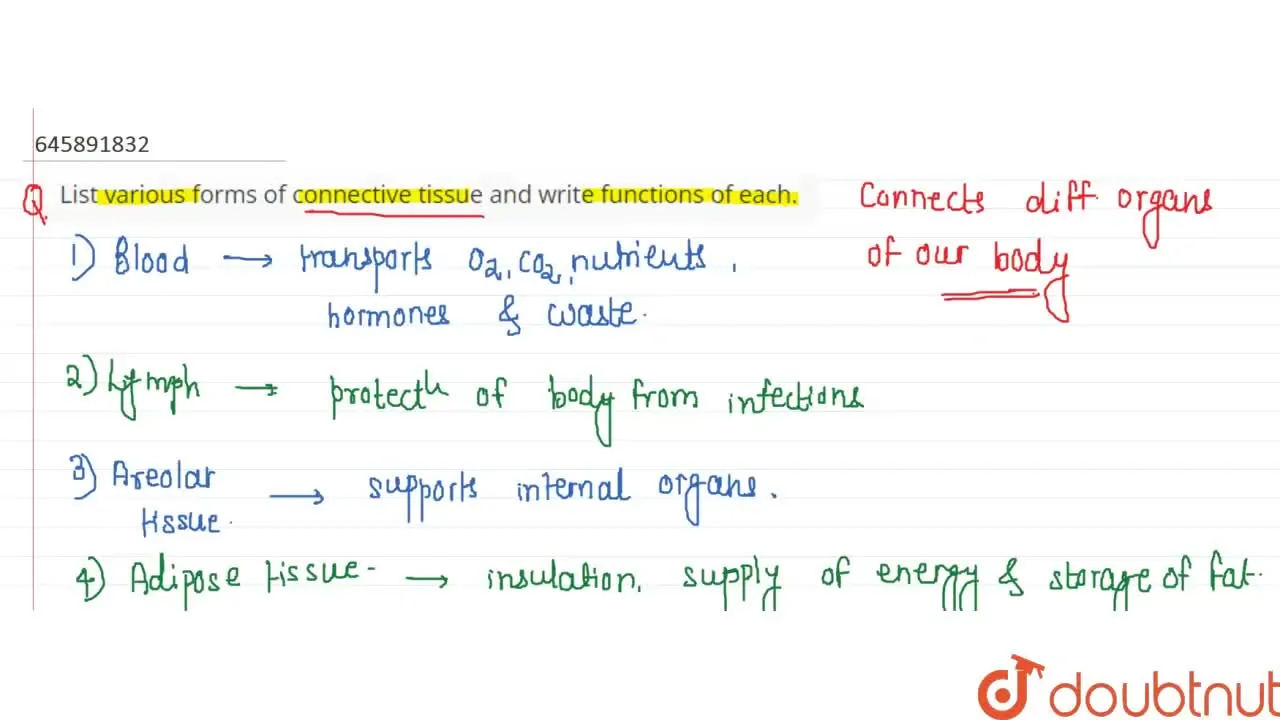 645891832
Q. List various forms of connective tissue and write functions of each.
Connects diff. organs
of our body
1) Blood → transports O2, CO2, nutrients,
hormones & waste.
2) Lymph → protectn of body from infections
3) Areolar
tissue. → supports internal organs.
4) Adipose tissue → insulation, supply of energy & storage of fat.
doubtnut